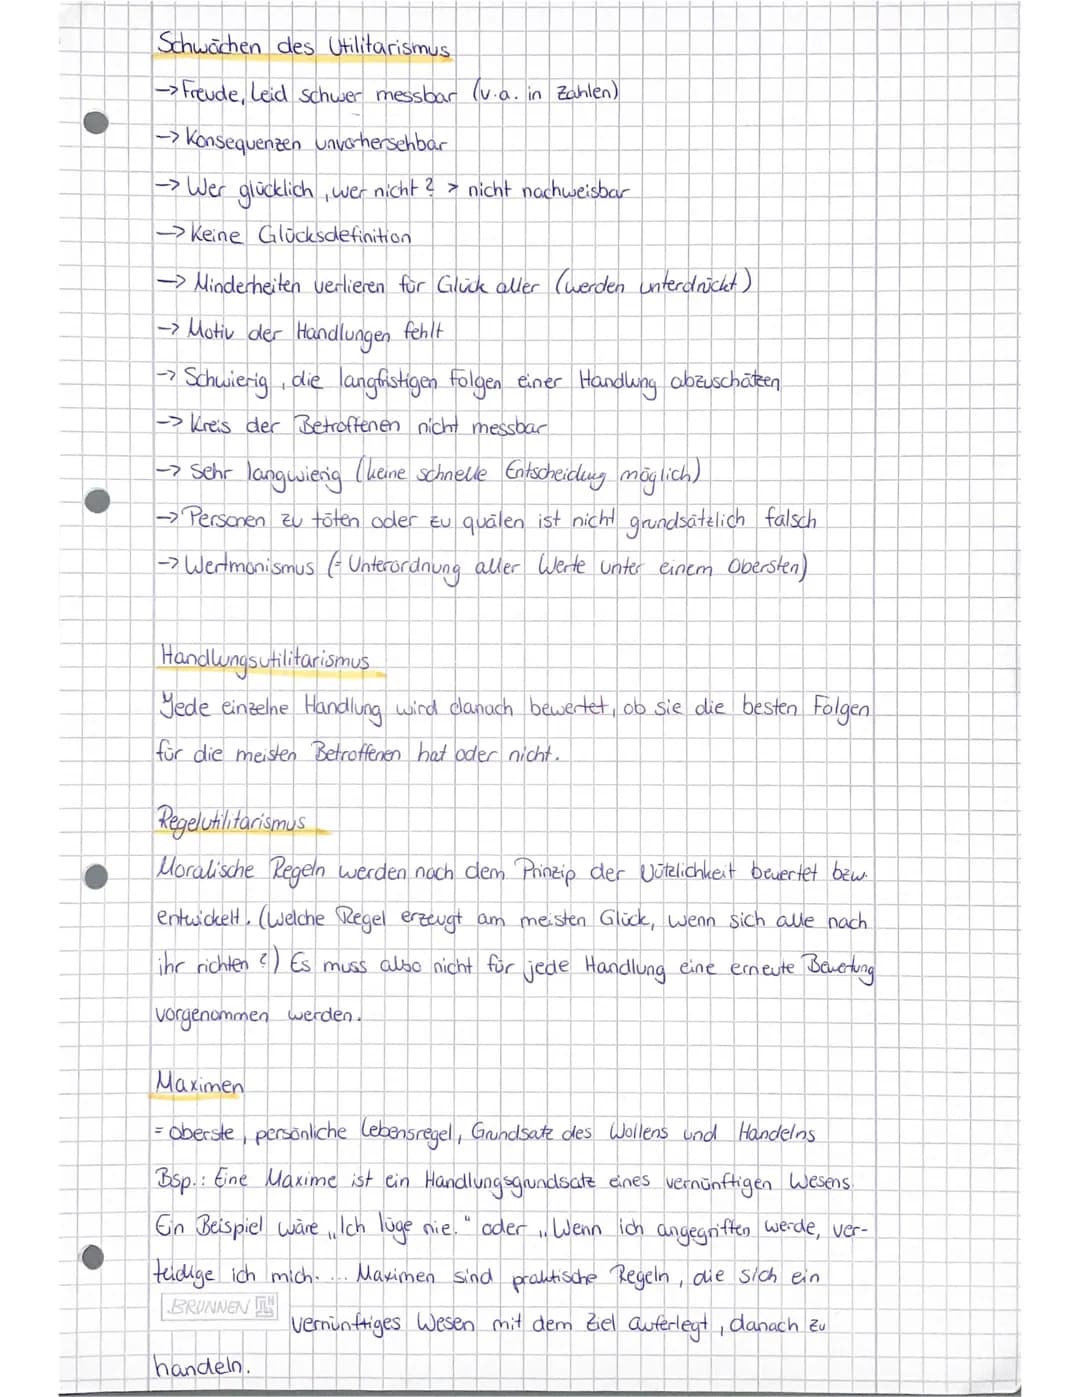 Schwächen des Utilitarismus
-> Freude, Leid schwer messbar (v.a. in Zahlen)
-> Konsequenzen unvorhersehbar
-> Wer glücklich, wer nicht? > nicht nachweisbar
-> Keine Glücksdefinition
-> Minderheiten verlieren für Glück aller (werden unterdrückt)
-> Motiv der Handlungen fehlt
-> Schwierig, die langfristigen Folgen einer Handlung abzuschätzen
-> Kreis der Betroffenen nicht messbar
-> Sehr langwierig (keine schnelle Entscheidung möglich)
-> Personen zu töten oder zu quälen ist nicht grundsätzlich falsch
-> Wertmonismus (= Unterordnung aller Werte unter einem Obersten)
Handlungsutilitarismus
Jede einzelne Handlung wird danach bewertet, ob sie die besten Folgen
für die meisten Betroffenen hat oder nicht.
Regelutilitarismus
Moralische Regeln werden nach dem Prinzip der Nützlichkeit bewertet bzw.
entwickelt. (Welche Regel erzeugt am meisten Glück, wenn sich alle nach
ihr richten?) Es muss also nicht für jede Handlung eine erneute Bewertung
vorgenommen werden.
Maximen
= oberste, persönliche Lebensregel, Grundsatz des Wollens und Handelns
Bsp.: Eine Maxime ist ein Handlungsgrundsatz eines vernünftigen Wesens.
Ein Beispiel wäre „Ich lüge nie." oder „Wenn ich angegriffen werde, ver-
teidige ich mich. ... Maximen sind praktische Regeln, die sich ein
BRUNNEN
vernünftiges Wesen mit dem Ziel auferlegt, danach zu
handeln.